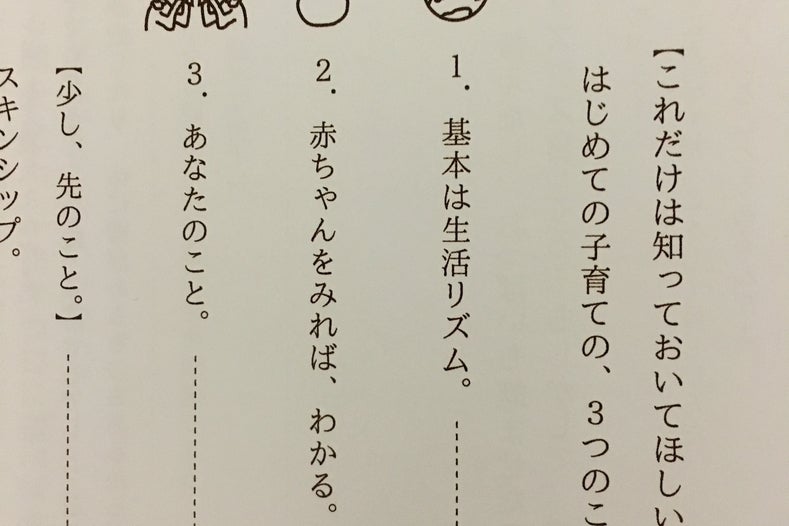 【これだけは知っておいてほしい
はじめての子育ての、3つのこ
1. 基本は生活リズム。
2. 赤ちゃんをみれば、わかる。
3. あなたのこと。
【少し、先のこと。】
スキンシップ。